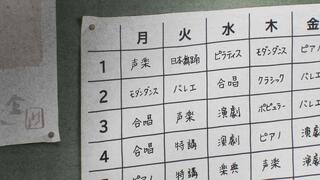 月 火 水 木 金
1 声楽 日本舞踊 ピラティス モダンダンス ピア
2 モダンダンス バレエ 合唱 クラシック バレエ
3 合唱 声楽 演劇 ポピュラー バレ
4 合唱 特講 演劇 ピアノ 演
5 ピアノ 特講 楽典 声楽